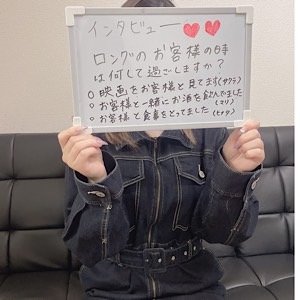 インタビュー♥♥
ロングのお客様の時
は何して過ごしますか？
○映画をお客様と見てます(サクラ)
○お客様と一緒にお酒を飲んでました(マリ)
○お客様と食事をとってました(ヒナタ)